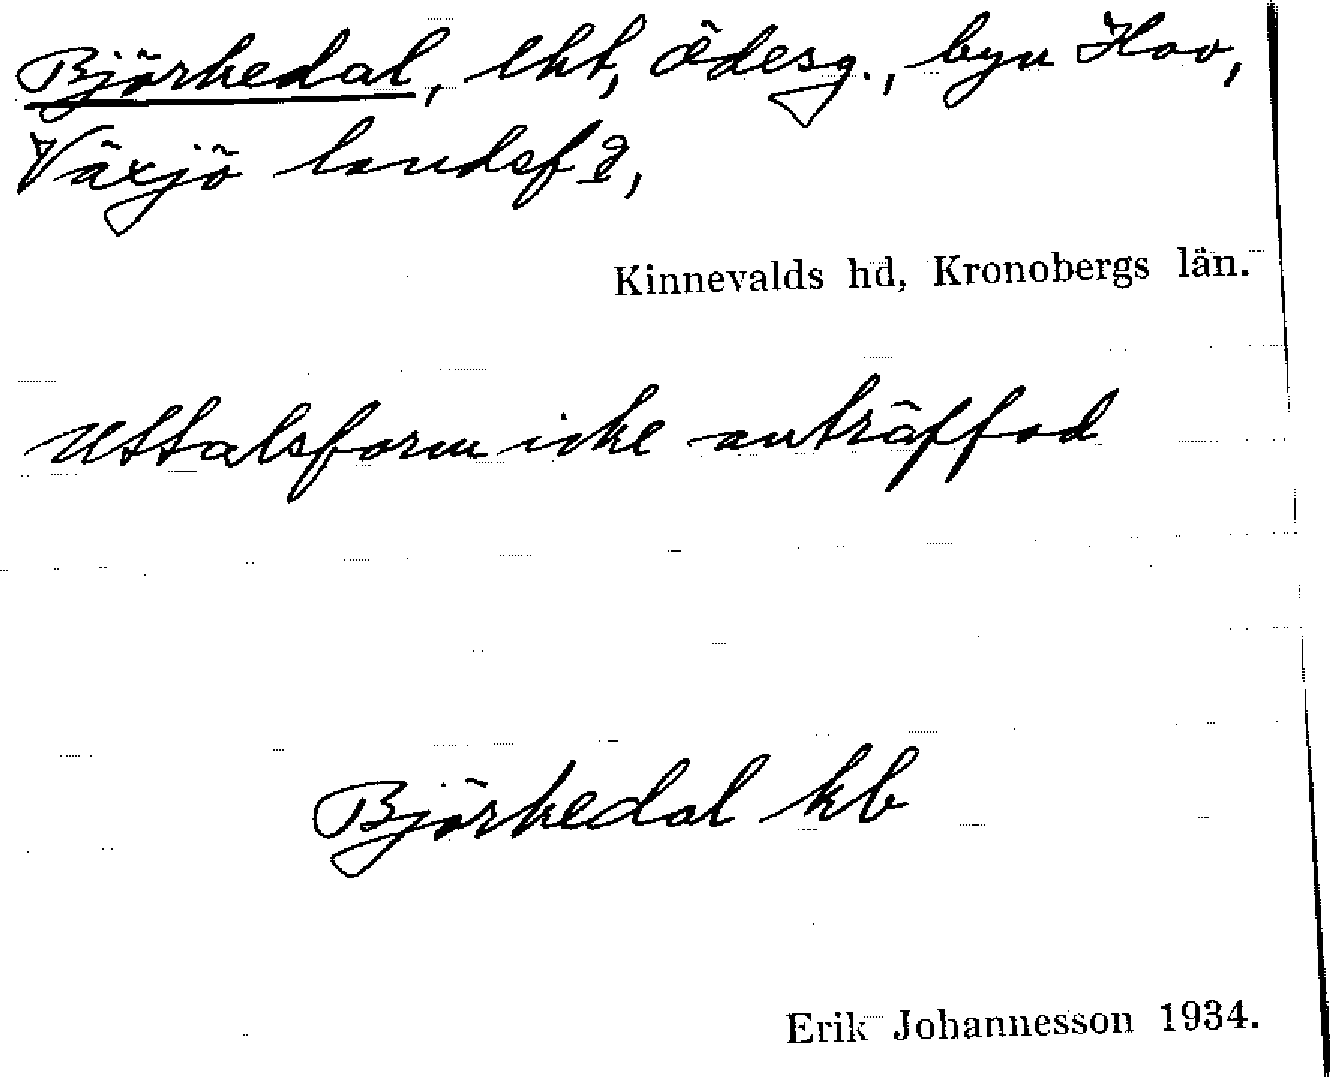 Björkedal, lht, ödesg., byn Hov,
Växjö landsf 2,
Kinnevalds hd, Kronobergs län.
Uttalsform icke anträffad
Björkedal kb
Erik Johannesson 1934.